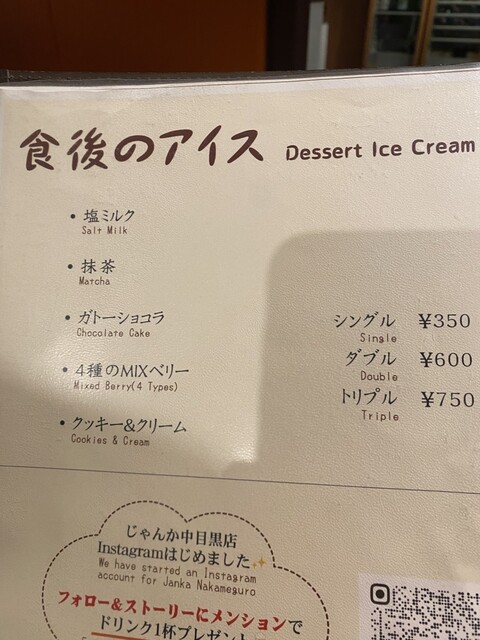 食後のアイス Dessert Ice Cream
・塩ミルク
Salt Milk
・抹茶
Matcha
・ガトーショコラ
Chocolate Cake
・4種のMIXベリー
Mixed Berry(4 Types)
・クッキー&クリーム
Cookies & Cream
シングル ¥350
Single
ダブル ¥600
Double
トリプル ¥750
Triple
じゃんか中目黒店
Instagramはじめました✨
We have started an Instagram
account for Janka Nakameguro
フォロー&ストーリーにメンションで
ドリンク1杯プレゼント